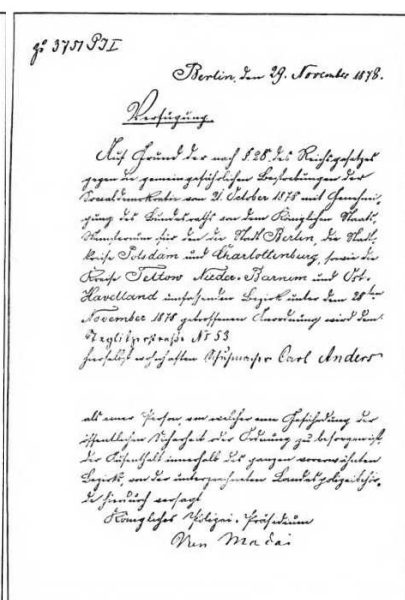 g° 3751 P J I
Berlin, den 29. November 1878.
Verfügung.
Auf Grund der nach § 28. des Reichsgesetzes
gegen die gemeingefährlichen Bestrebungen der
Socialdemokratie vom 21. October 1878 mit Genehmi-
gung des Bundesraths von dem Königlichen Staats-
Ministerium für den die Stadt Berlin, die Stadt-
kreise Potsdam und Charlottenburg, sowie die
Kreise Teltow, Nieder-Barnim und Ost-
Havelland umfassenden Bezirk unter dem 28ten
November 1878 getroffenen Anordnung wird dem
Steglitzerstraße No 53
hierselbst wohnhaften Schuhmacher Carl Anders
als einer Person, von welcher eine Gefährdung der
öffentlichen Sicherheit oder Ordnung zu besorgen ist,
der Aufenthalt innerhalb des ganzen vorerwähnten
Bezirks, von der unterzeichneten Landespolizeibehör-
de hierdurch versagt
Königliches Polizei-Präsidium
von Madai